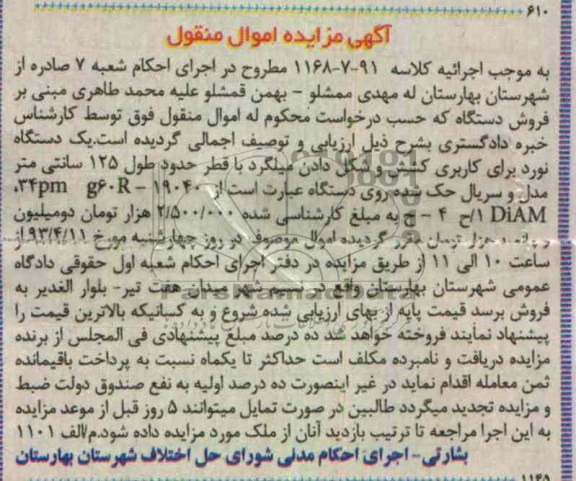 ۶۱۰
آگهی مزایده اموال منقول
به موجب اجرائیه کلاسه ۹۱-۷-۱۱۶۸ مطروح در اجرای احکام شعبه ۷ صادره از
شهرستان بهارستان له مهدی ممشلو - بهمن قمشلو علیه محمد طاهری مبنی بر
فروش دستگاه که حسب درخواست محکوم له اموال منقول فوق توسط کارشناس
خبره دادگستری بشرح ذیل ارزیابی و توصیف اجمالی گردیده است.یک دستگاه
نورد برای کاربری کشش و شکل دادن میلگرد با قطر حدود طول ۱۲۵ سانتی متر
مدل و سریال حک شده روی دستگاه عبارت است از ۱۹۰۴۰ - g۶۰R ۳۴pm.
DiAM ۱/ح ۴ - ج به مبلغ کارشناسی شده ۲/۵۰۰/۰۰۰ هزار تومان دومیلیون
و پانصد هزار تومان مقرر گردیده اموال موصوف در روز چهارشنبه مورخ ۹۳/۴/۱۱ از
ساعت ۱۰ الی ۱۱ از طریق مزایده در دفتر اجرای احکام شعبه اول حقوقی دادگاه
عمومی شهرستان بهارستان واقع در نسیم شهر میدان هفت تیر- بلوار الغدیر به
فروش برسد قیمت پایه از بهای ارزیابی شده شروع و به کسانیکه بالاترین قیمت را
پیشنهاد نمایند فروخته خواهد شد ده درصد مبلغ پیشنهادی فی المجلس از برنده
مزایده دریافت و نامبرده مکلف است حداکثر تا یکماه نسبت به پرداخت باقیمانده
ثمن معامله اقدام نماید در غیر اینصورت ده درصد اولیه به نفع صندوق دولت ضبط
و مزایده تجدید میگردد طالبین در صورت تمایل میتوانند ۵ روز قبل از موعد مزایده
به این اجرا مراجعه تا ترتیب بازدید آنان از ملک مورد مزایده داده شود.م/الف ۱۱۰۱
بشارتی- اجرای احکام مدنی شورای حل اختلاف شهرستان بهارستان
۱۱۴۵